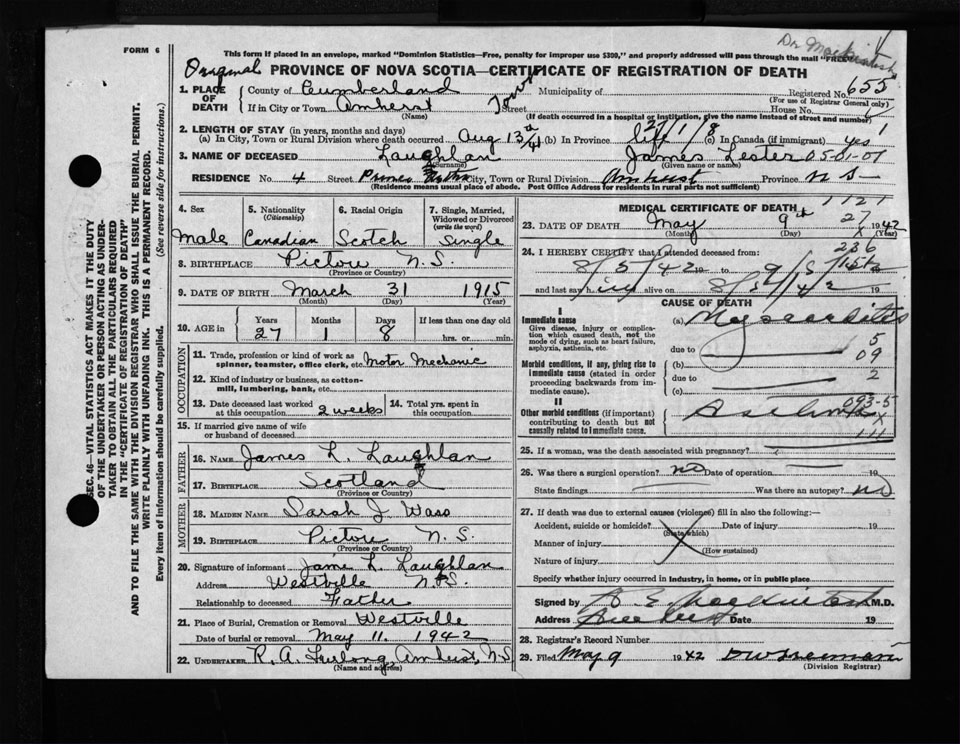 Dr Mackintosh
FORM 6
This form if placed in an envelope, marked "Dominion Statistics—Free, penalty for improper use $300," and properly addressed will pass through the mail "FREE"
Original PROVINCE OF NOVA SCOTIA—CERTIFICATE OF REGISTRATION OF DEATH
1. PLACE OF DEATH County of Cumberland Municipality of Registered No. 655
(For use of Registrar General only)
If in City or Town Amherst Town Street House No.
(Name) (If death occurred in a hospital or institution, give the name instead of street and number)
2. LENGTH OF STAY (in years, months and days)
(a) In City, Town or Rural Division where death occurred Aug 13th/41 (b) In Province life 27/1/8 (c) In Canada (if immigrant) yes
3. NAME OF DECEASED Laughlan James Lester 05-01-01
(Surname) (Given name or names)
RESIDENCE No. 4 Street City, Town or Rural Division Amherst Province N S—
(Residence means usual place of abode. Post Office Address for residents in rural parts not sufficient)
4. Sex
Male
5. Nationality
(Citizenship)
Canadian
6. Racial Origin
Scotch
7. Single, Married, Widowed or Divorced
(write the word)
Single
8. BIRTHPLACE Pictou N.S.
(Province or Country)
9. DATE OF BIRTH March 31 1915
(Month) (Day) (Year)
10. AGE in Years Months Days If less than one day old
27 1 8 hrs. or min.
OCCUPATION
11. Trade, profession or kind of work as spinner, teamster, office clerk, etc. Motor Mechanic
12. Kind of industry or business, as cotton-mill, lumbering, bank, etc.
13. Date deceased last worked at this occupation 2 weeks
14. Total yrs. spent in this occupation
15. If married give name of wife or husband of deceased
FATHER
16. NAME James L. Laughlan
17. BIRTHPLACE Scotland
(Province or Country)
MOTHER
18. MAIDEN NAME Sarah J Wass
19. BIRTHPLACE Pictou N. S.
(Province or Country)
20. Signature of informant Jame L. Laughlan
Address Westville N.S.
Relationship to deceased Father
21. Place of Burial, Cremation or Removal Westville
Date of burial or removal May 11. 1942
22. UNDERTAKER R. A. Furlong, Amherst, N.S
(Name and address)
MEDICAL CERTIFICATE OF DEATH 1121
23. DATE OF DEATH May 9th 27 1942
(Month) (Day) (Year)
24. I HEREBY CERTIFY that I attended deceased from: 236
8/5/42 19 to 9/5 19
and last say h alive on 8/5/42 19
CAUSE OF DEATH
I
Immediate cause
Give disease, injury or complication which caused death, not the mode of dying, such as heart failure, asphyxia, asthenia, etc.
(a) Myocarditis
due to 5
09
Morbid conditions, if any, giving rise to immediate cause (stated in order proceeding backwards from immediate cause).
(b)
due to 2
(c)
II
Other morbid conditions (if important) contributing to death but not causally related to immediate cause.
093-5
Asthma X
111
25. If a woman, was the death associated with pregnancy?
26. Was there a surgical operation? no Date of operation 19
State findings Was there an autopsy? no
27. If death was due to external causes (violence) fill in also the following:—
Accident, suicide or homicide? Date of injury 19
(State which)
Manner of injury
(How sustained)
Nature of injury
Specify whether injury occurred in industry, in home, or in public place
Signed by E Mackintosh M.D.
Address Date 19
28. Registrar's Record Number
29. Filed May 9 1942
(Division Registrar)
SEC. 46—VITAL STATISTICS ACT MAKES IT THE DUTY
OF THE UNDERTAKER OR PERSON ACTING AS UNDER-
TAKER TO OBTAIN ALL THE PARTICULARS REQUIRED
IN THE "CERTIFICATE OF REGISTRATION OF DEATH"
AND TO FILE THE SAME WITH THE DIVISION REGISTRAR WHO SHALL ISSUE THE BURIAL PERMIT.
WRITE PLAINLY WITH UNFADING INK. THIS IS A PERMANENT RECORD.
Every item of information should be carefully supplied. (See reverse side for instructions.)